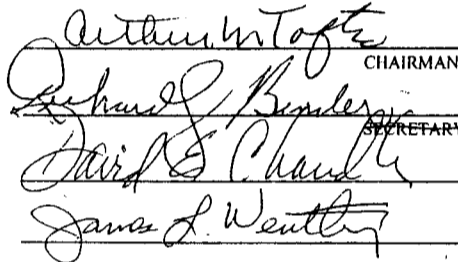 Arthur M Tofte
CHAIRMAN
Richard J Bender
SECRETARY
David E Chandler
James L. Wentley